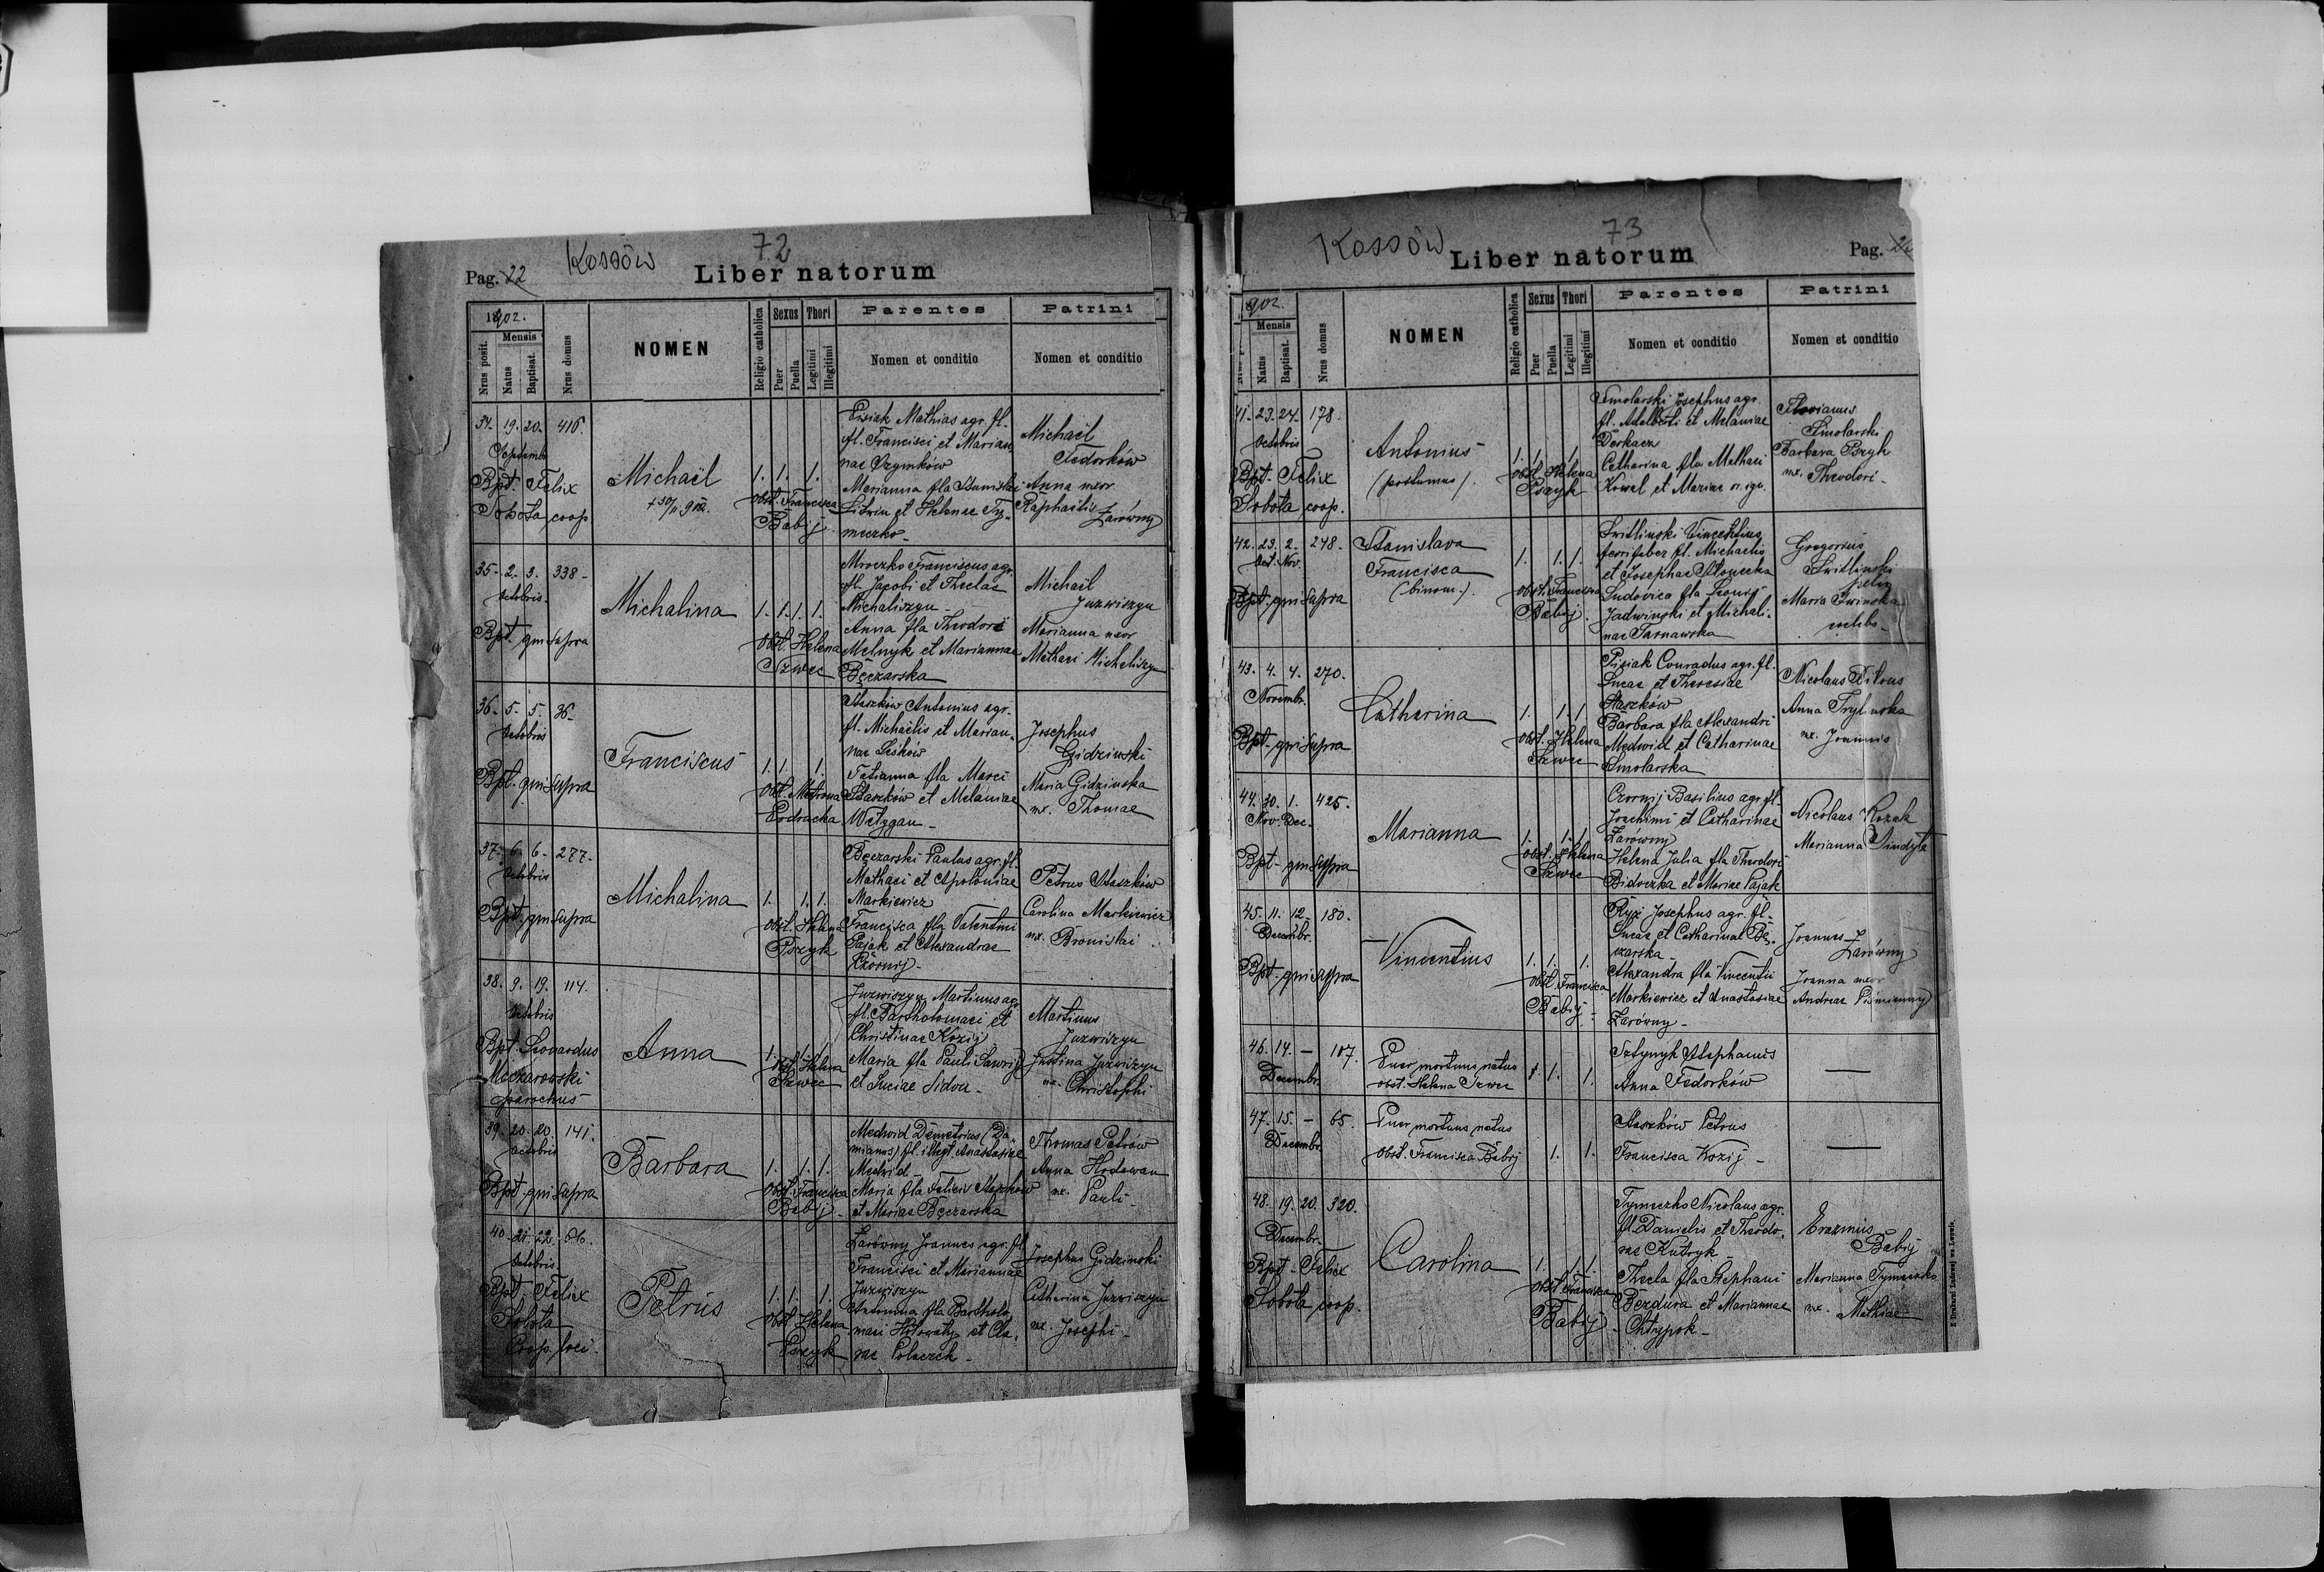 Kossów
72
Pag. 22
Liber natorum
1902.
Mensis
Nrus posit.
Natus
Baptisat.
Nrus domus
NOMEN
Religio catholica
Sexus
Puer
Puella
Thori
Legitimi
Illegitimi
Parentes
Nomen et conditio
Patrini
Nomen et conditio
34. 19. 20. 416.
Septembr
Bpt. Felix
Sobota coop
Michaël
1. 1. 1.
obst. Francisca
Babij
Mathias agr. fl.
fl. Francisci et Marian-
nae Szymków
Marianna fla Stanislai
Litwin et Helenae Ty-
meczko
Michaël
Fedorków
Anna uxor
Raphaelis
Zarówny
35. 2. 3. 338.
Octobris.
Bpt. qui supra
Michalina
1. 1. 1. 1.
obst. Helena
Szwec
Mroczko Franciscus agr.
fl. Jacobi et Theclae
Michaliszyn
Anna fla Theodori
Melnyk et Mariannae
Bęczarska
Michaël
Juzwiszyn
Marianna uxor
Mathaei Micheliszyn
36. 5. 5. 36.
Octobris
Bpt. qui supra
Franciscus
1. 1. 1.
obst. Matrona
Staszków Antonius agr.
fl. Michaelis et Marian-
nae Leśków
Tatianna fla Marci
Staszków et Melaniae
Josephus
Gidzinski
Maria Gidzinska
ux. Thomae
37. 6. 6. 277.
Octobris
Bpt. qui supra
Michalina
1. 1. 1.
obst. Helena
Pszyk
Bęczarski Paulus agr. fl.
Mathaei et Apoloniae
Markiewicz
Francisca fla Valentini
Pająk et Alexandrae
Czornij
Petrus Staszków
Carolina Markiewicz
ux. Bronislai
38. 9. 19. 114.
Octobris
Bpt. Leonardus
parochus
Anna
1. 1. 1.
obst. Helena
Szwec
Juzwiszyn Martinus agr
fl. Bartholomaei et
Christinae Kozij
Maria fla Pauli Ławrij
et Luciae Sidor
Martinus
Juzwiszyn
Justina Juzwiszyn
ux. Christophi
39. 20. 20. 141.
Octobris
Bpt. qui supra
Barbara
1. 1. 1.
obst. Francisca
Babij
Medwid Demetrius (Da-
mianus) fl. illegt. Anastasiae
Medwid
Maria fla Felicis Staszków
et Mariae Bęczarska
Thomas Petrów
Anna Hodowan
ux. Pauli
40. 21. 22. 86.
Octobris.
Bpt. Felix
Sobota
Coop. loci
Petrus
1. 1. 1.
obst. Helena
Pszyk
Zarówny Joannes agr. fl.
Francisci et Mariannae
Juzwiszyn
Antonina fla Bartholo-
maei Hołowaty et Cla-
rae Polaczek
Josephus Gidzinski
Catharina Juzwiszyn
ux. Josephi
Kossów
73
Liber natorum
Pag.
902.
Mensis
Natus
Baptisat.
Nrus domus
NOMEN
Religio catholica
Sexus
Puer
Puella
Thori
Legitimi
Illegitimi
Parentes
Nomen et conditio
Patrini
Nomen et conditio
41. 23. 24. 178.
Octobris
Bpt. Felix
Sobota coop.
Antonius
(postumus).
1. 1. 1.
obst. Helena
Pszyk
Smolarski Josephus agr.
fl. Adelberti et Melaniae
Derkacz
Catharina fla Mathaei
Kowal et Mariae
Florianus
Smolarski
Barbara Pszyk
ux. Theodori
42. 23. 2. 248.
Oct. Nov.
Bpt. qui supra
Stanislava
Francisca
(binom.)
1. 1. 1.
obst. Francisca
Babij
Switlinski Vincentius
ferrifaber fl. Michaelis
et Josephae
Ludovica fla Leonis
Jadwinski et Michali-
nae Tarnawska
Gregorius
Switlinski
Maria
43. 4. 4. 270.
Novembr.
Bpt. qui supra
Catharina
1. 1. 1.
obst. Helena
Szwec
Pisiak Conradus agr. fl.
Lucae et Theresiae
Staszków
Barbara fla Alexandri
Medwid et Catharinae
Smolarska
Nicolaus Bilous
Anna
ux. Joannis
44. 30. 1. 425.
Nov. Dec.
Bpt. qui supra
Marianna
1. 1. 1.
obst. Helena
Szwec
Czornij Basilius agr. fl.
Joachimi et Catharinae
Zarówny
Helena Julia fla Theodori
Bidoczka et Mariae Pająk
Nicolaus Kozak
Marianna
45. 11. 12. 180.
Decembr.
Bpt. qui supra
Vincentius
1. 1. 1.
obst. Francisca
Babij
Ryż Josephus agr. fl.
Lucae et Catharinae Bę-
czarska
Alexandra fla Vincentii
Markiewicz et Anastasiae
Zarówny
Joannes
Zarówny
Joanna uxor
Andreae Piśmienny
46. 14. — 107.
Decembr.
Puer mortuus natus
obst. Helena Szwec
1. 1. 1.
Sztynyk Stephanus
Anna Fedorków
—
47. 15. — 65.
Decembr.
Puer mortuus natus
obst. Francisca Babij
1. 1.
Staszków Petrus
Francisca Kozij
—
48. 19. 20. 320.
Decembr.
Bpt. Felix
Sobota coop.
Carolina
1. 1. 1.
obst. Francisca
Babij
Tymeczko Nicolaus agr.
fl. Danielis et Theodo-
rae Kutryk
Thecla fla Stephani
Bezdura et Mariannae
Chtypok
Erazmus
Babij
Marianna Tymeczko
ux. Mathiae